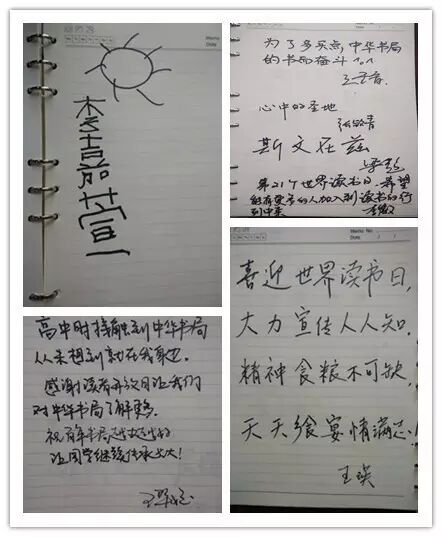 李喆萱
为了多买点中华书局
的书而奋斗!
心中的圣地
斯文在兹
第21个世界读书日,希望
能有更多的人加入到读书的行
列中来
高中时接触到中华书局
从未想到就在我身边.
感谢读者开放日让我们
对中华书局了解更多.
祝百年书局越来越好
让国学继续传承光大!
喜迎世界读书日,
大力宣传人人知.
精神食粮不可缺,
天天飨宴情满志.
王瑛